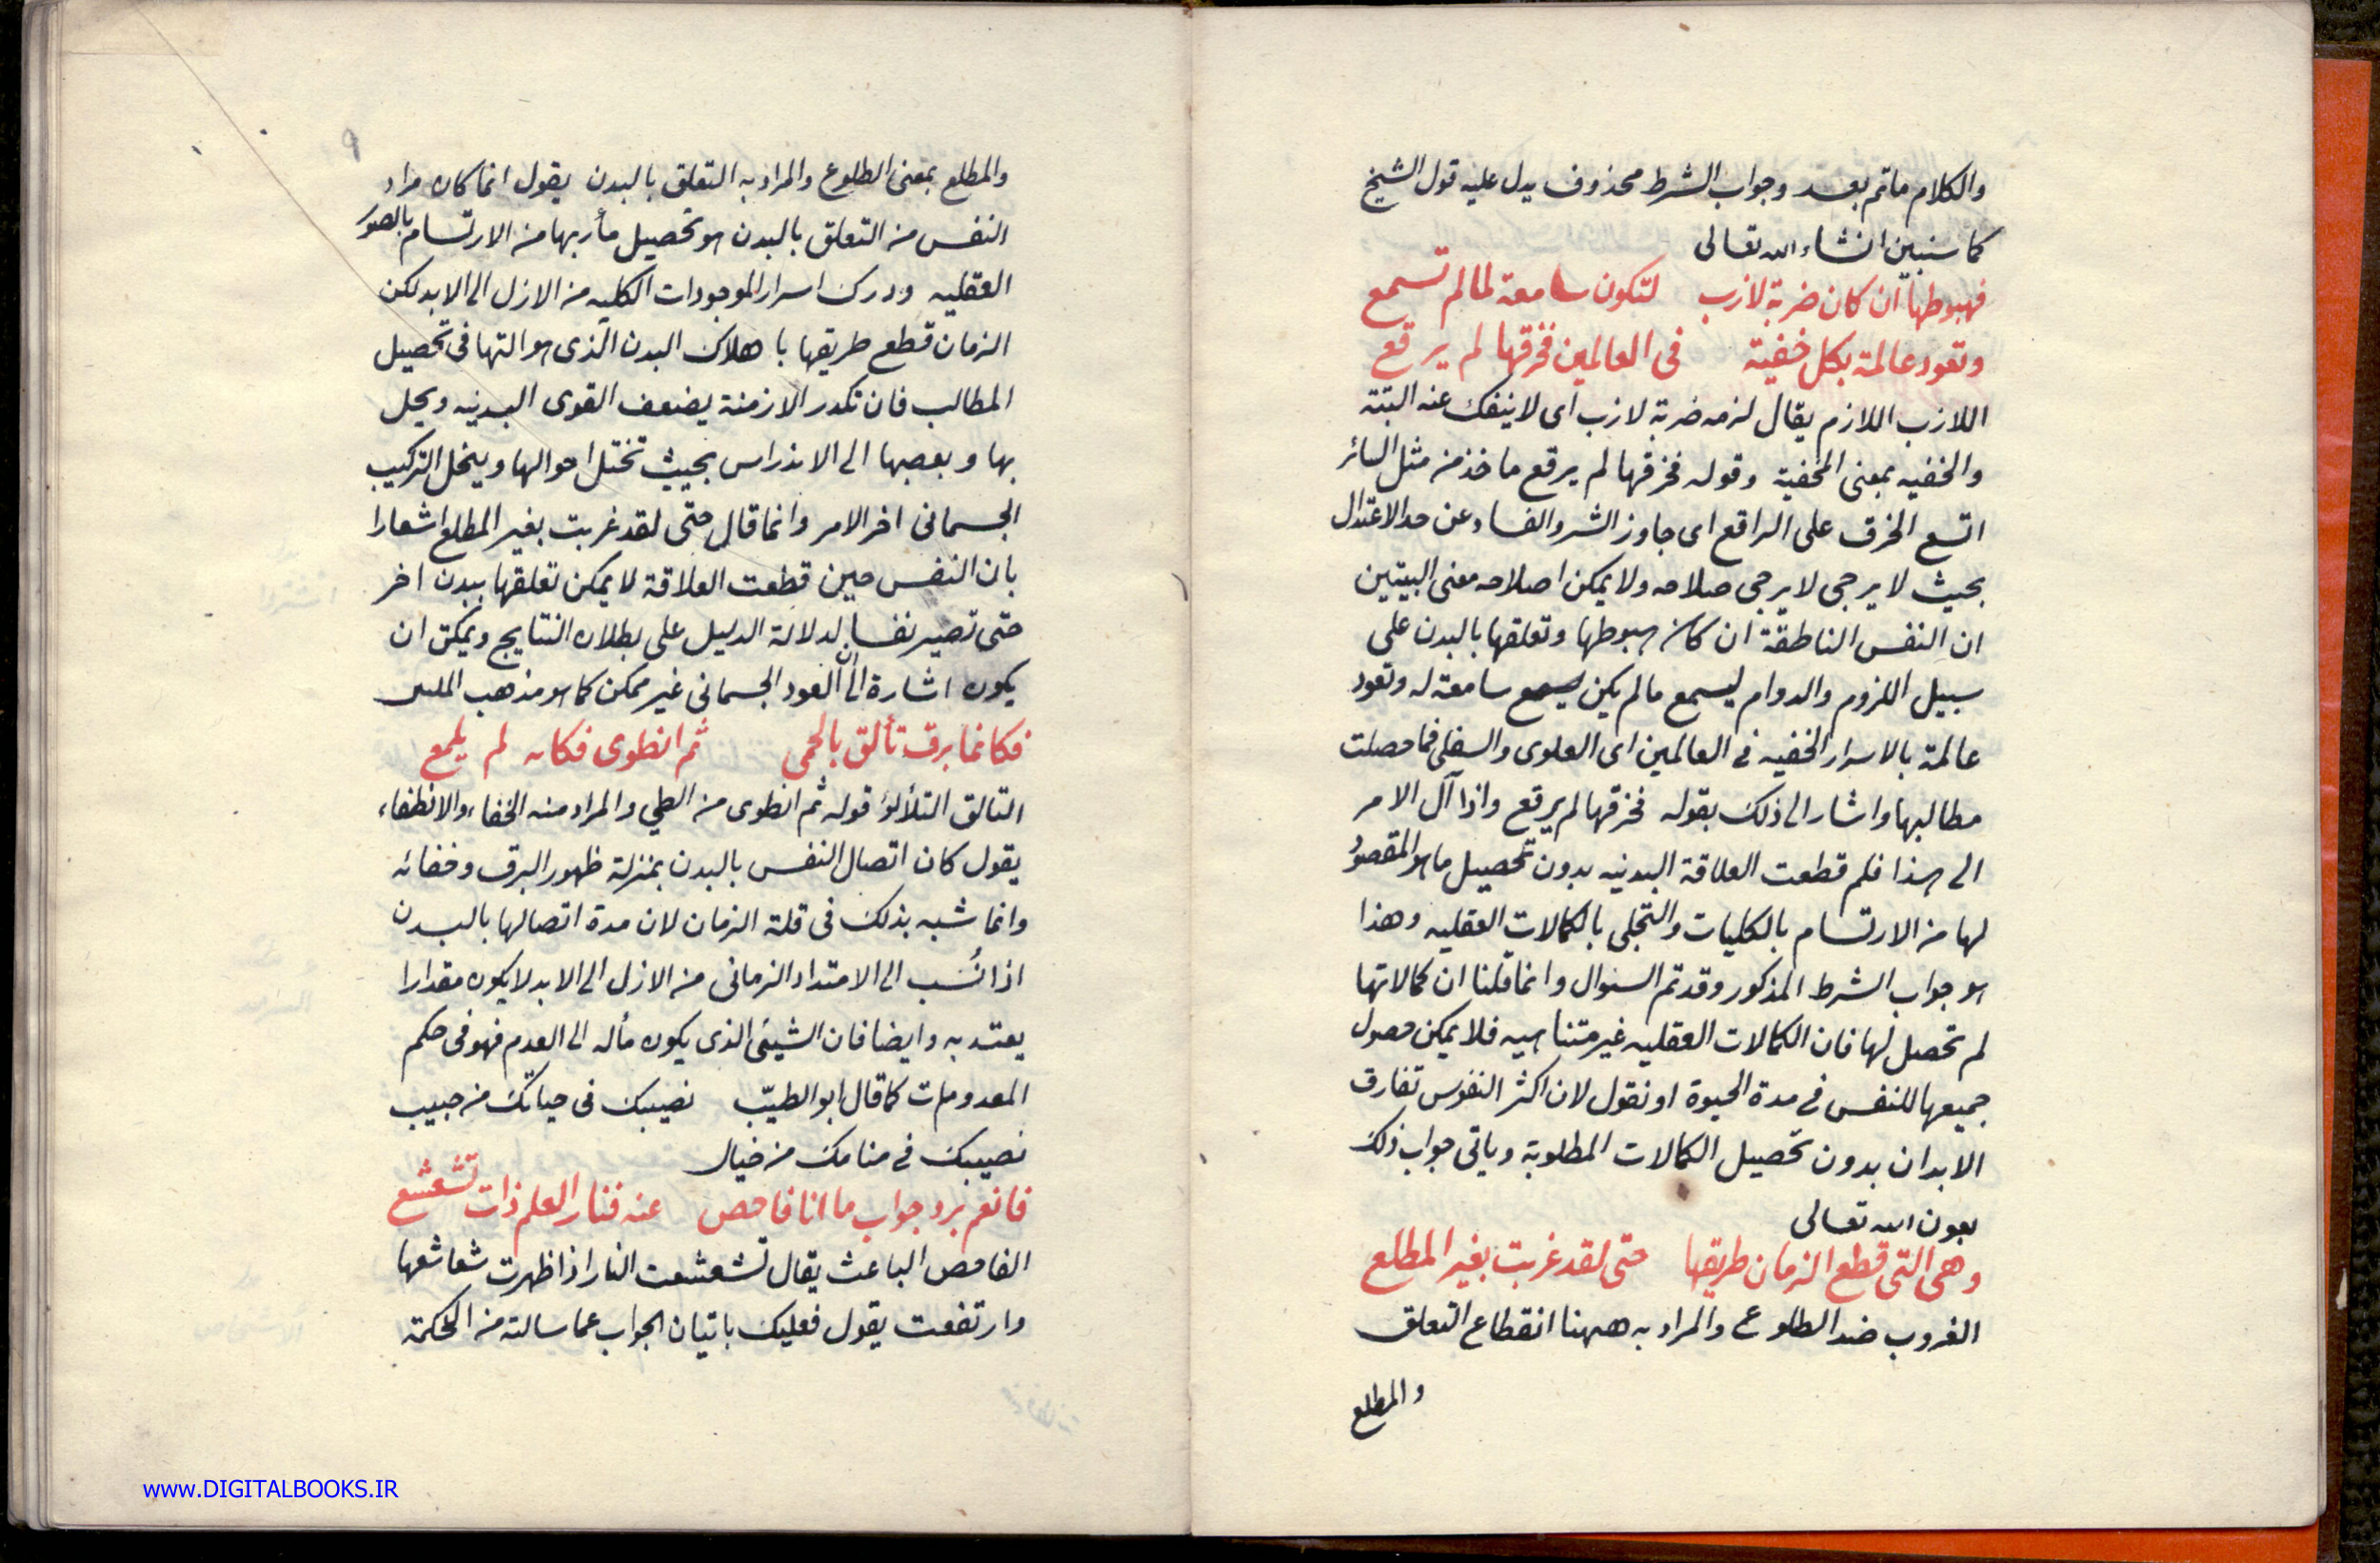 والكلام ماتم بعد وجواب الشرط محذوف يدل عليه قول الشيخ
كما سنبين انشاء الله تعالى
فهبوطها ان كان ضربة لازب لتكون سامعة لما لم تسمع
وتعود عالمة بكل خفية فى العالمين فخرقها لم يرقع
اللازب اللازم يقال لزمه ضربة لازب اى لا ينفك عنه البتة
والخفيه بمعنى المخفية وقوله فخرقها لم يرقع ماخذ من مثل السائر
اتسع الخرق على الراقع اى جاوز الشر والفساد عن حد الاعتدال
بحيث لا يرجى لا يرجى صلاحه ولا يمكن اصلاحه معنى البيتين
ان النفس الناطقة ان كان هبوطها وتعلقها بالبدن على
سبيل اللزوم والدوام ليسمع مالم يكن يسمع سامعة له وتعود
عالمة بالاسرار الخفيه فى العالمين اى العلوى والسفلى فما حصلت
مطالبها واشار الى ذلك بقوله فخرقها لم يرقع واذا آل الامر
الى هذا فلم قطعت العلاقة البدنيه بدون تحصيل ما هو المقصود
لها من الارتسام بالكليات والتجلى بالكمالات العقليه وهذا
هو جواب الشرط المذكور وقد تم السئوال وانما قلنا ان كمالاتها
لم تحصل لها فان الكمالات العقليه غير متناهيه فلا يمكن حصول
جميعها للنفس فى مدة الحيوة او نقول لان اكثر النفوس تفارق
الابدان بدون تحصيل الكمالات المطلوبة وياتى جواب ذلك
بعون الله تعالى
وهى التى قطع الزمان طريقها حتى لقد غربت بغير المطلع
الغروب ضد الطلوع والمراد به ههنا انقطاع التعلق
والمطلع
٩
والمطلع بمعنى الطلوع والمراد به التعلق بالبدن يقول انما كان مراد
النفس من التعلق بالبدن هو تحصيل مأربها من الارتسام بالصور
العقليه ودرك اسرار الموجودات الكليه من الازل الى الابد لكن
الزمان قطع طريقها با هلاك البدن الذى هو التها فى تحصيل
المطالب فان تكدر الازمنة يضعف القوى البدنيه ويحل
بها و الى الاندراس بحيث تختل احوالها وينحل التركيب
الجسمانى اخر الامر وانما قال حتى لقد غربت بغير المطلع اشعارا
بان النفس حين قطعت العلاقة لا يمكن تعلقها ببدن اخر
حتى تصير نفسا لدلالة الدليل على بطلان النتايج ويمكن ان
يكون اشارة الى ان العود الجسمانى غير ممكن كما هو مذهب
فكانما برق تألق بالحمى ثم انطوى فكانه لم يلمع
التالق التلألؤ قوله ثم انطوى من الطي والمراد منه الخفاء والانطفاء
يقول كان اتصال النفس بالبدن بمنزلة ظهور البرق وخفائه
وانما شبه بذلك فى قلة الزمان لان مدة اتصالها بالبدن
اذا نُسب الى الامتداد الزمانى من الازل الى الابد لا يكون مقدارا
يعتد به وايضا فان الشيئ الذى يكون مأله الى العدم فهو فى حكم
المعدومات كما قال ابو الطيّب نصيبك فى حياتك من حبيب
نصيبك فى منامك من خيال
فانعم برد جواب ما انا فاحص عنه فنار العلم ذات تشعشع
الفاحص الباعث يقال تشعشعت النار اذا ظهرت شعاشعها
وارتفعت يقول فعليك باتيان الجواب عما سالته من الحكمة
www.DIGITALBOOKS.IR